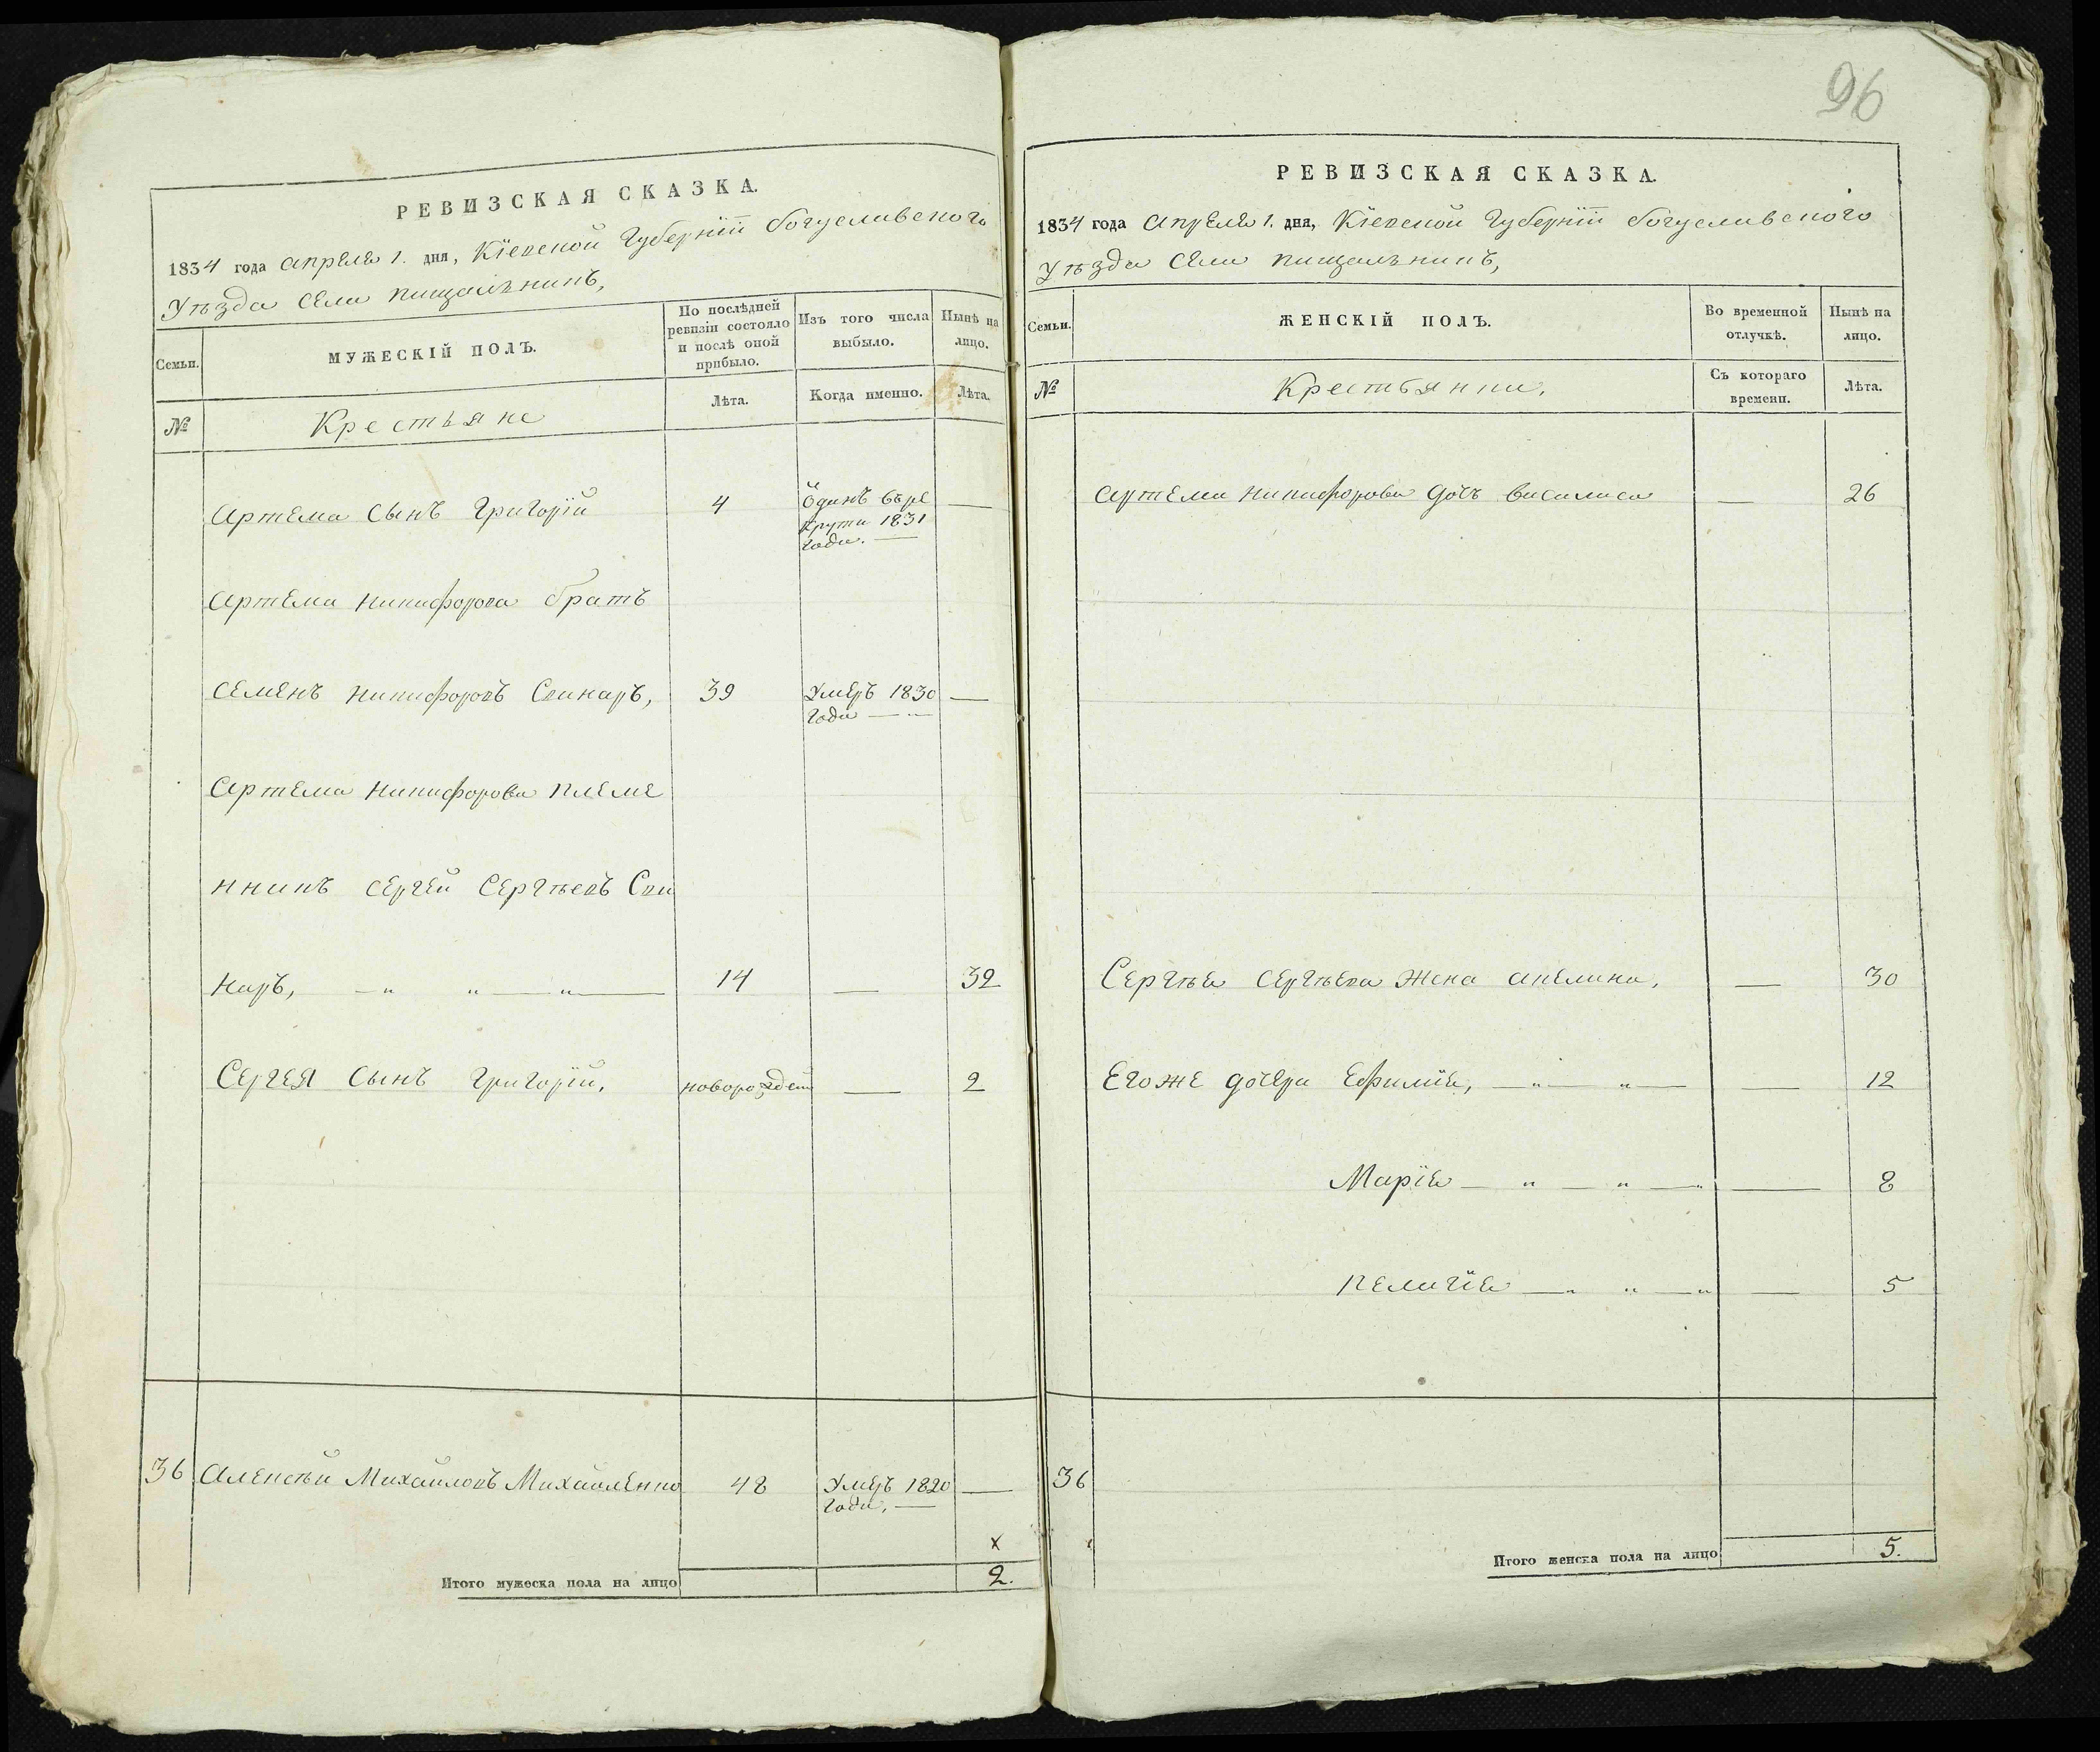 96
РЕВИЗСКАЯ СКАЗКА.
1834 года Апреля 1. дня, Кіевской Губерніи Богуславского
Уѣзда Села Пищальникъ,
Семьи.
МУЖЕСКІЙ ПОЛЪ.
По послѣдней
ревизіи состояло
и послѣ оной
прибыло.
Изъ того числа
выбыло.
Нынѣ на
лицо.
№
Крестьяне
Лѣта.
Когда именно.
Лѣта.
Артема сынъ Григорій 4 —
года. —
Артема Никифорова братъ
Семенъ Никифоровъ Свинаръ, 39 Умеръ 1830 —
года —
Артема Никифорова племе
нникъ Сергей Сергѣевъ Сви
наръ, — " " — " — 14 — 32
Сергея сынъ Григорій, новорожден — 2
36 Алексѣй Михайловъ Михайленко 48 Умеръ 1820 —
года, —
х
Итого мужеска пола на лицо 2.
РЕВИЗСКАЯ СКАЗКА.
1834 года Апреля 1. дня, Кіевской Губерніи Богуславского
Уѣзда Села Пищальникъ,
Семьи.
ЖЕНСКІЙ ПОЛЪ.
Во временной
отлучкѣ.
Нынѣ на
лицо.
№
Крестьянки,
Съ котораго
времени.
Лѣта.
Артема Никифорова дочь Василиса — 26
Сергѣя Сергѣева жена Акелина, — 30
Егоже дочери Ефимія, — " — " — — 12
Марія — " — " — " — 8
Пелагія — " " — " — 5
36
Итого женска пола на лицо 5.